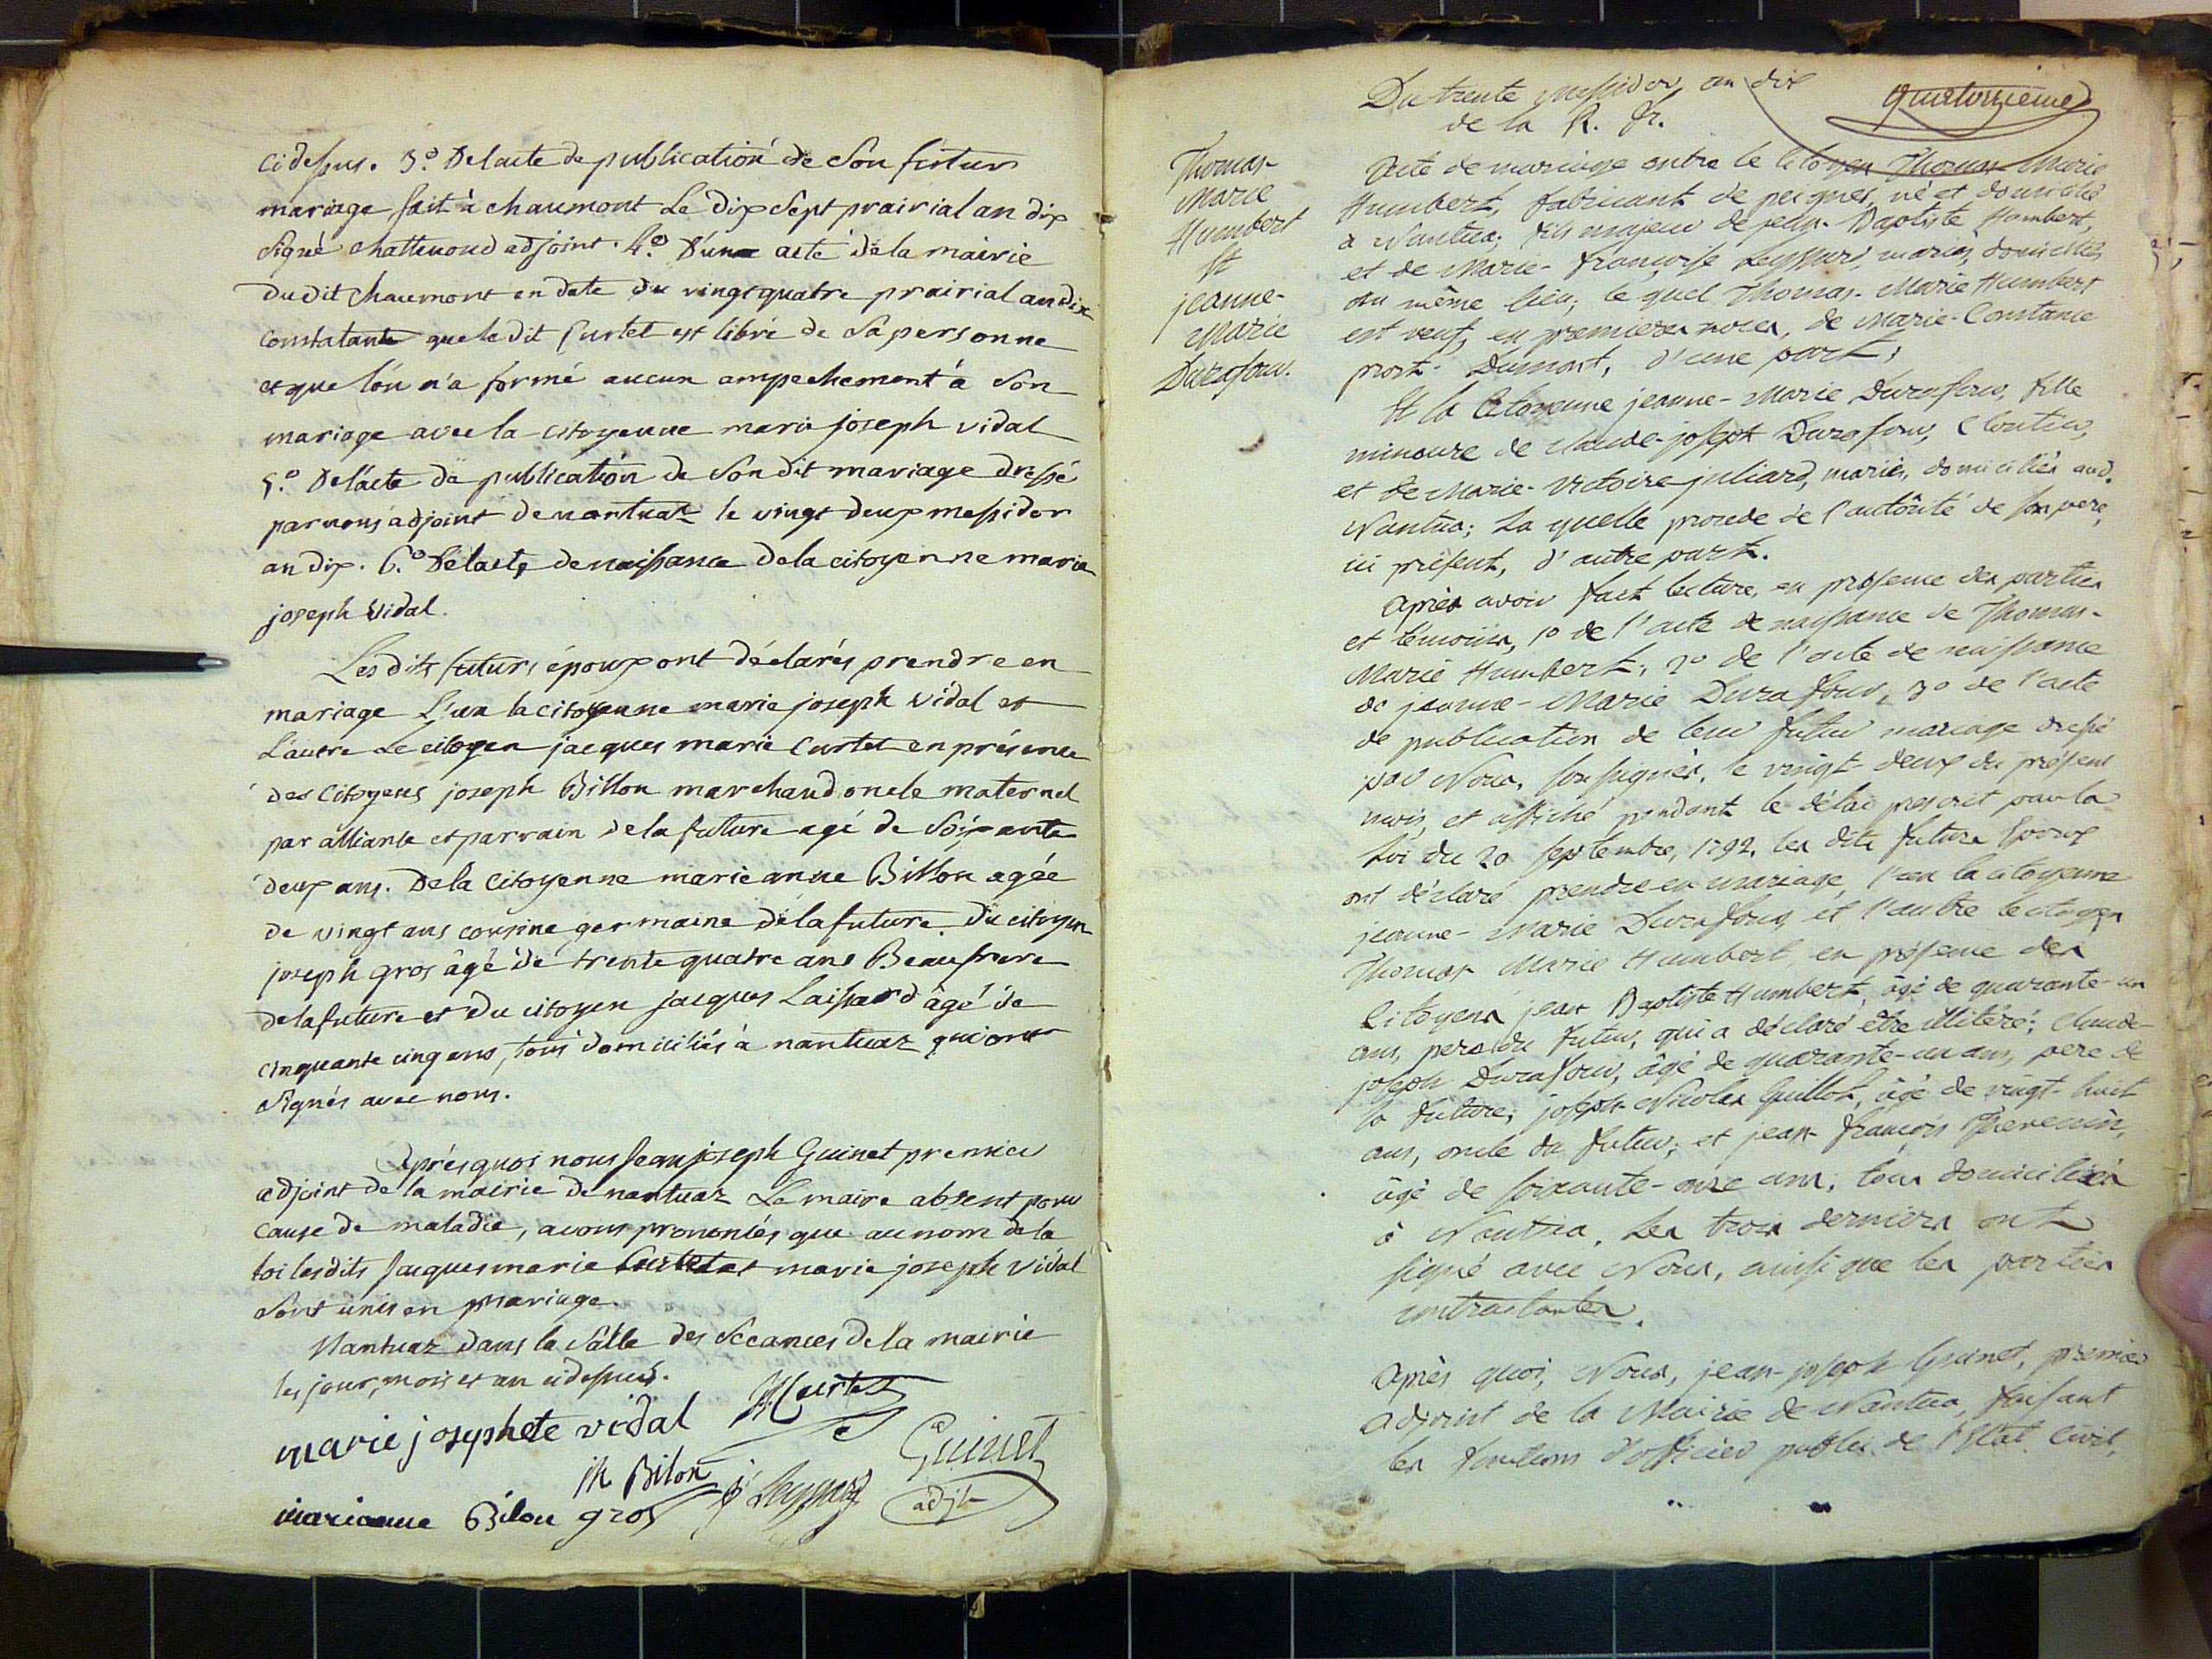 cidessus. 3.º Delacte de publication de Son futur
mariage, fait à chaumont Le dix Sept prairial an dix
Signé chattenoud adjoint. 4.º D'une acte de la mairie
dudit Chaumont en date du vingt quatre prairial an dix
Constatante que ledit Curtet est libre de Sa personne
et que lón n'a formé aucun ampechement à Son
mariage avec la citoyenne marie joseph vidal
5.º Delácte de publication de Son dit mariage dressé
par nous adjoint de nantuaz le vingt deux messidor
an dix. 6.º Délacte de naissance dela citoyenne marie
joseph Vidal.
Lesdits futurs époux ont déclarés prendre en
mariage L'un la citoyenne marie joseph vidal et
Lautre Le citoyen jacques marie Curtet en présence
des Citoyens joseph Billon marchand oncle maternel
par alliance et parrain dela future agé de Soixante
deux ans. Dela Citoyenne marie anne Billon agée
de vingt ans cousine germaine délafuture. Du citoyen
joseph gros âgé de trente quatre ans Beaufrere
delafuture et du citoyen jacques Laissard âgé de
cinquante cinq ans, tous domiciliés à nantuaz qui ont
Signés avec nous.
Après quoi nous Jean joseph Guinet premier
adjoint de la mairie de nantuaz Le maire absent pour
Cause de maladie, avons prononcés que au nom de la
loi lesdits Jacques marie Curtet et marie joseph Vidal
Sont unis en mariage.
Nantuaz dans la Salle des Sceances de la mairie
les jour, mois et an cidessus.
marie josephete vidal Curtet
jh Bilon Guinet
marianne Bilon gros adjt
Du trente messidor, an dix quatorzieme
de la R. fr.
Thomas-
Marie
Humbert
Et
jeanne-
Marie
Durafour.
Acte de mariage entre le Citoyen Thomas Marie
Humbert, fabricant de peignes, né et domicilié
à Nantua; fils majeur de jean-Baptiste Humbert,
et de Marie-françoise Leyssard, mariés, domiciliés
au même lieu; le quel Thomas-Marie Humbert
est veuf, en premieres noces, de Marie-Constance
prost-Dumont, d'une part;
Et la Citoyenne jeanne-Marie Durafour, fille
mineure de claude-joseph Durafour, Cloutier,
et de Marie-Victoire juliard, mariés, domiciliés aud.
Nantua; La quelle procede de l'autôrité de son pere,
ici présent, d'autre part.
Après avoir fait lecture, en présence des parties
et témoins, 1º de l'acte de naissance de Thomas-
Marie Humbert; 2º de l'acte de naissance
de jeanne-Marie Durafour, 3º de l'acte
de publication de leur futur mariage dressé
par Nous, soussignés, le vingt-deux du présent
mois, et affiché pendant le délai prescrit par la
Loi du 20 septembre, 1792, les dits futurs Epoux
ont déclaré prendre en mariage, l'un la citoyenne
jeanne-Marie Durafour, et l'autre le citoyen
Thomas Marie Humbert, en présence des
Citoyens jean Baptiste Humbert, âgé de quarante-un
ans, pere du futur, qui a déclaré être illitéré; claude-
joseph Durafour, âgé de quarante-un ans, pere de
la future; joseph-Nicolas Guillot, âgé de vingt-huit
ans, oncle du futur; et jean-françois Thevenin,
âgé de soixante-onze ans; tous domiciliés
à Nantua. Les trois derniers ont
signé avec Nous, ainsi que les parties
contractantes.
Après quoi, Nous, jean-joseph Guinet, premier
adjoint de la Mairie de Nantua, faisant
les fonctions d'officier public de l'Etat Civil,